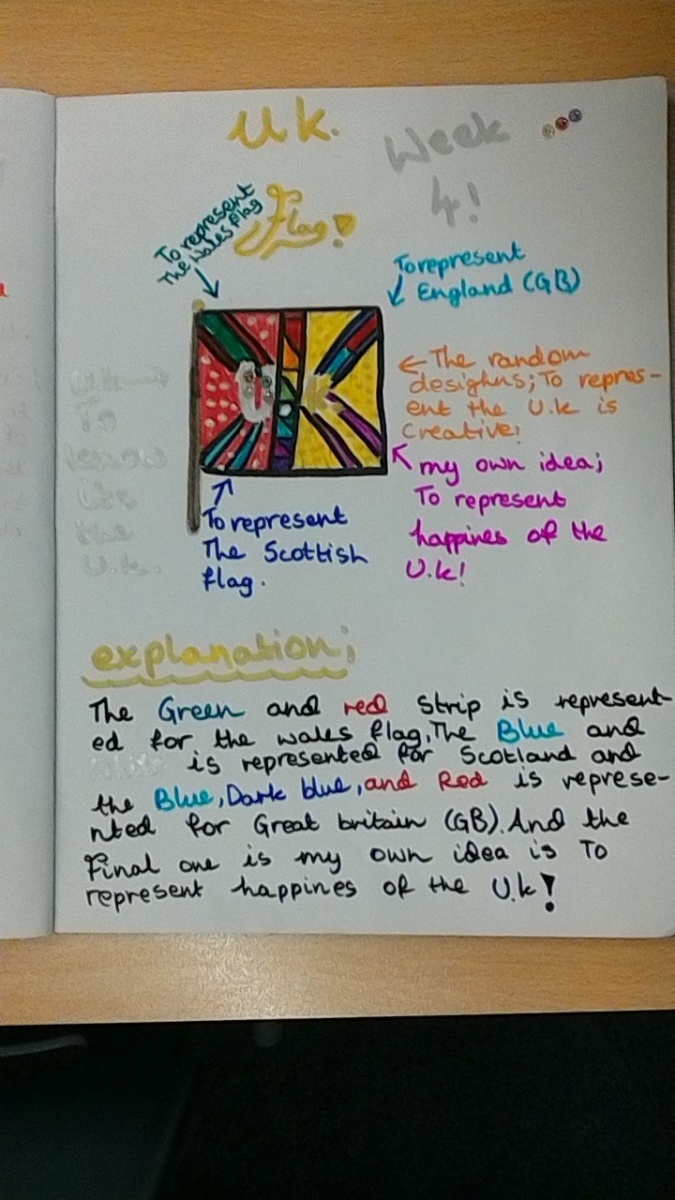 Uk.
Week
4!
Flag!
To represent
The Wales flag
To represent
England (GB)
← The random
desighns; To repres-
ent the U.k is
Creative!
my own idea;
To represent
happines of the
U.k!
To represent
The Scottish
flag.
To
know
the
U.k.
explanation;
The Green and red strip is represent-
ed for the wales flag, The Blue and
is represented for Scotland and
the Blue, Dark blue, and Red is represe-
nted for Great britain (GB). And the
Final one is my own idea is To
represent happines of the U.k!